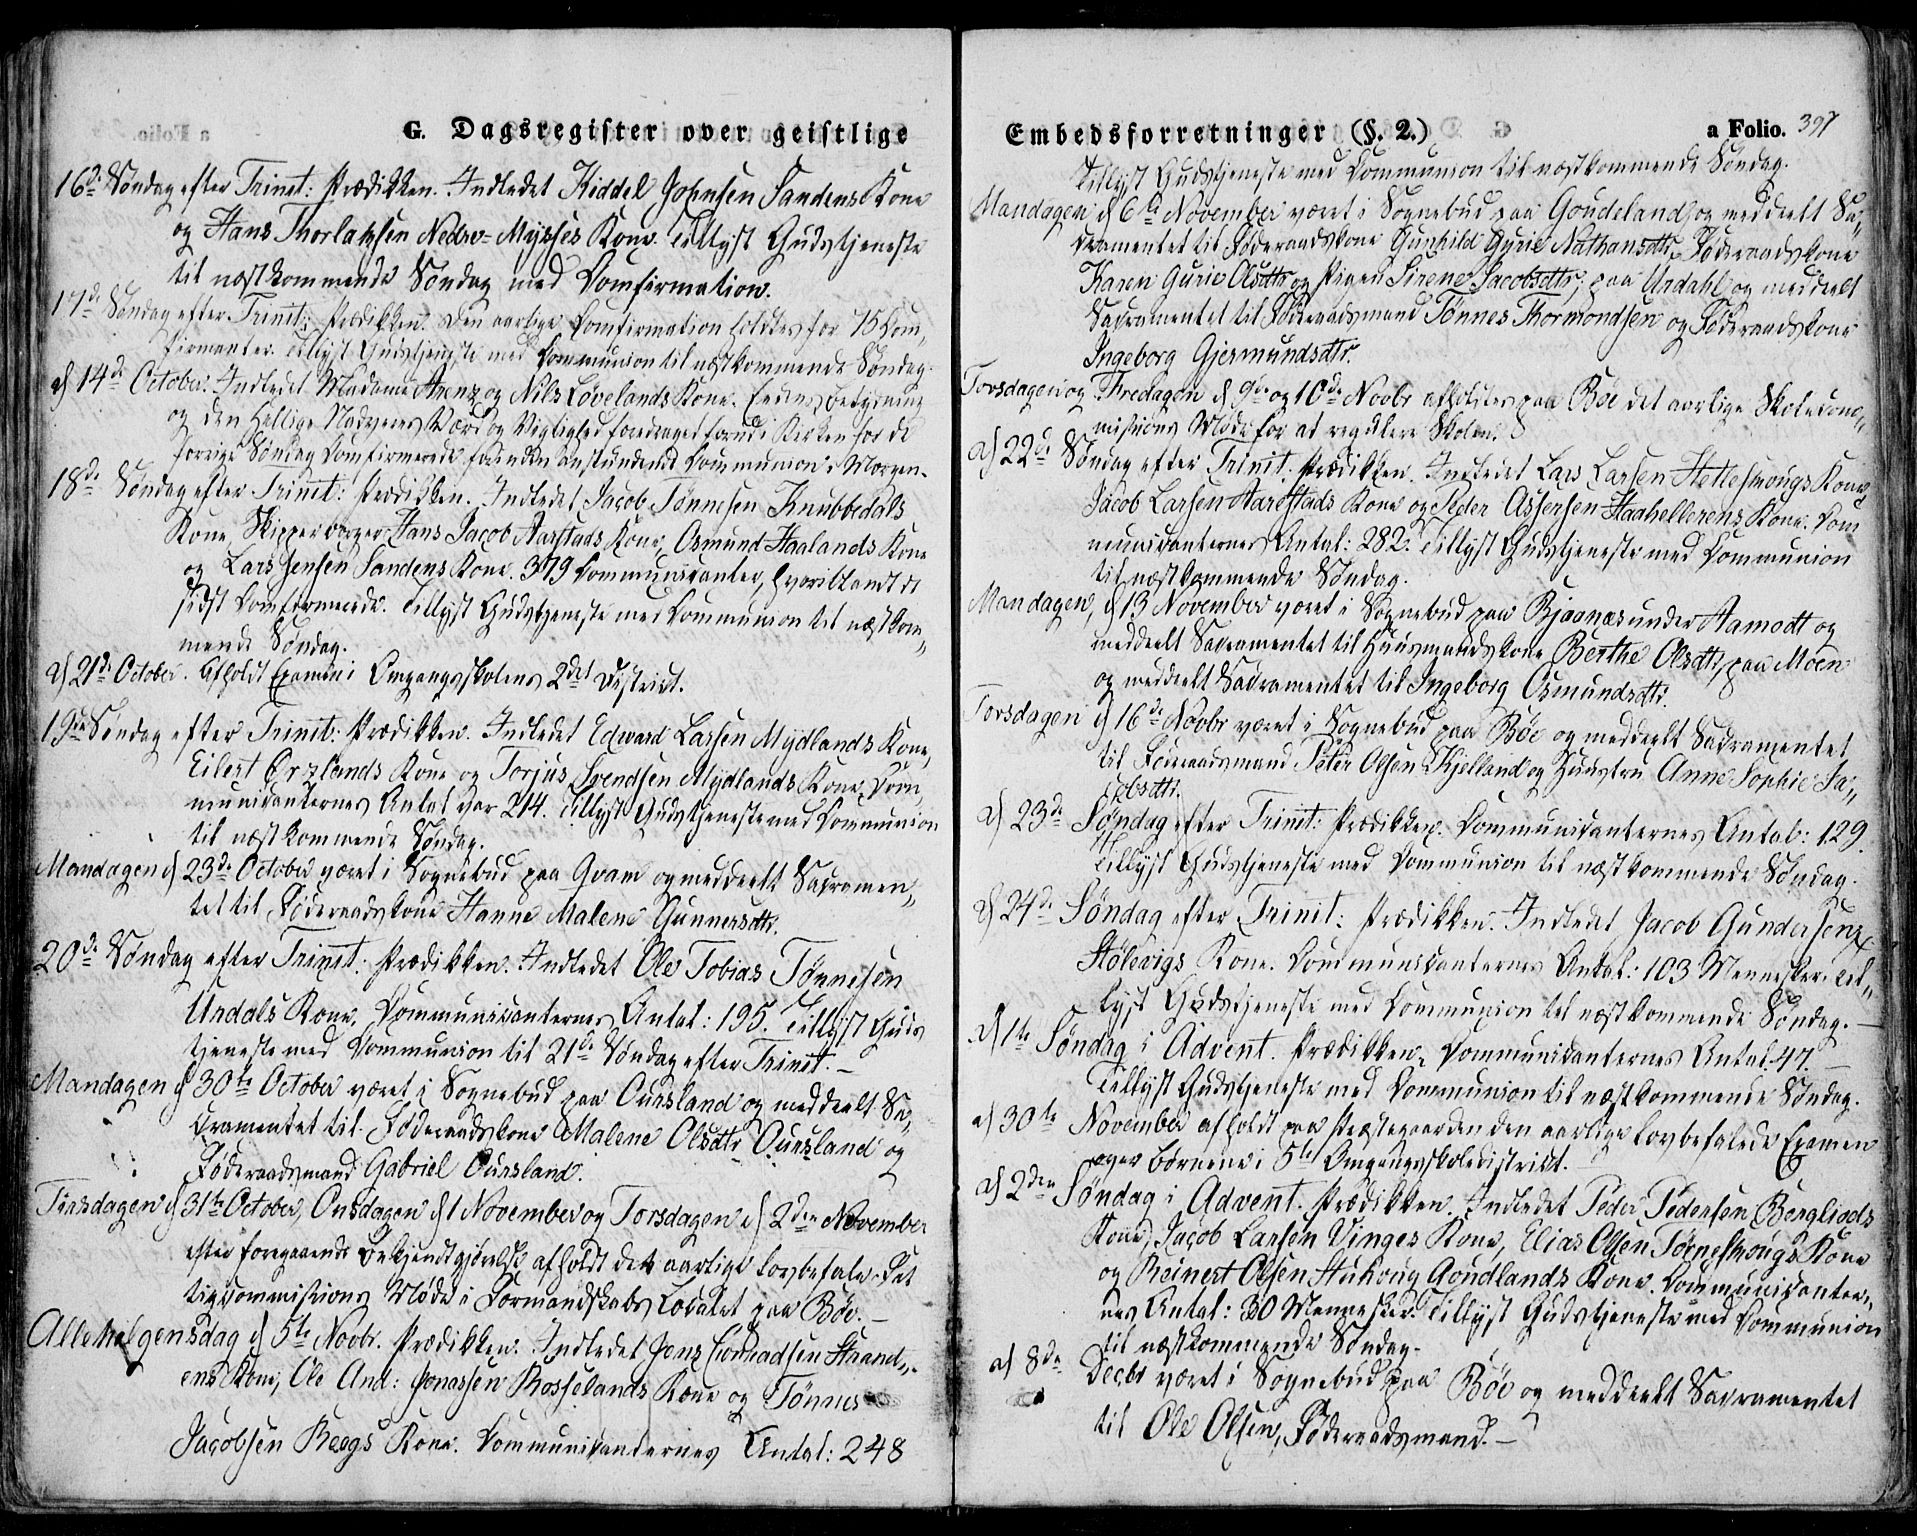 G. Dagsregister over geistlige
16de Søndag efter Trinit: Prædikken. Indledet Kiddel Johnsen Sandens Kone
og Hans Thorlaksen Nedre-Mysses Kone. Tillyst Gudstjeneste
til næstkommende Søndag med Confirmation.
17de Søndag efter Trinit: Prædikken. Den aarlige Confirmation holdtes for 75 Con„
firmanter. Tillyst Gudstjeneste med Communion til næstkommende Søndag.
d 14de October. Indledet Madame Arenz og Nils Løvelands Kone. Eedens Betydning
og den Hellige Nadveres Værd og Vigtighed foredraget forud i Kirken for de
forrige Søndag Confirmerede, for den anstundende Communion i Morgen.
18de Søndag efter Trinit: Prædikken. Indledet Jacob Tønnesen Knubbedals
Kone, Skipper Hans Jacob Aarstads Kone, Osmund Haalands Kone
og Lars Jensen Sandens Kone. 379 Communicanter, hvoriblandt de
sidst Confirmerede. Tillyst Gudstjeneste med Communion til næstkom„
mende Søndag.
d 21de October. Afholdt Examen i Omgangsskolens 2det District.
19de Søndag efter Trinit: Prædikken. Indledet Edward Larsen Mydlands Kone,
Eilert Ørslands Kone og Torjus Svendsen Mydlands Kone. Com„
municanternes Antal var 214. Tillyst Gudstjeneste med Communion
til næstkommende Søndag.
Mandagen d 23de October været i Sognebud paa Qvam og meddeelt Sacramen„
tet til Føderaadskone Hanne Malene Gunnersdtr.
20de Søndag efter Trinit: Prædikken. Indledet Ole Tobias Tønnesen
Urdals Kone. Communicanternes Antal: 195. Tillyst Guds
tjeneste med Communion til 21de Søndag efter Trinit. —
Mandagen d 30te October været i Sognebud paa Oursland og meddeelt Sa„
cramentet til Føderaadskone Malene Olsdtr Oursland og
Føderaadsmand Gabriel Oursland.
Tirsdagen d 31te October, Onsdagen d 1 November og Torsdagen d 2den November
efter foregaaende Bekjendtgjørelse afholdt det aarlige lovbefalede Fat
tigcommissions Møde i Formandskabs Localet paa Bøe. —
Allehelgensdag d 5te Novbr. Prædikken. Indledet Jens Conradsen Strand„
ens Kone, Ole And: Jonassen Rosselands Kone og Tønnes
Jacobsen Beegs Kone. Communicanternes Antal: 248
Embedsforretninger (§. 2.)
a Folio. 397
Tillyst Gudstjeneste med Communion til næstkommende Søndag.
Mandagen d 6te November været i Sognebud paa Goudeland og meddeelt Sa„
cramentet til Føderaadskone Gunhild Gurie Nathansdtr, Føderaadskone
Karen Gurie Olsdtr og Pigen Sirene Jacobsdtr; paa Urdahl og meddeelt
Sacramentet til Føderaadsmand Tønnes Thormondsen og Føderaadskone
Ingeborg Gjermundsdtr.
Torsdagen og Fredagen d 9de og 10de Novbr afholdtes paa Bøe det aarlige Skolecom„
missions Møde for at regulere Skolen.
d 22de Søndag efter Trinit: Prædikken. Indledet Lars Larsen Hetlesmougs Kone,
Jacob Larsen Aarestads Kone og Peder Assersen Haahellerens Kone. Com
municanternes Antal: 282. Tillyst Gudstjeneste med Communion
til næstkommende Søndag.
Mandagen, d 13 November været i Sognebud paa Bjaanæs under Aamodt og
meddeelt Sacramentet til Huusmandskone Berthe Olsdtr, paa Moen
og meddeelt Sacramentet til Ingeborg Osmundsdtr.
Torsdagen d 16de Novbr været i Sognebud paa Bøe og meddeelt Sacramentet
til Føderaadsmand Peter Olsen Skjelland og Hustru Anne Sophie Ja„
cobsdtr.
d 23de Søndag efter Trinit: Prædikken. Communicanternes Antal: 129.
Tillyst Gudstjeneste med Communion til næstkommende Søndag.
d 24de Søndag efter Trinit: Prædikken. Indledet Jacob Gundersen
Stølevigs Kone. Communicanternes Antal: 103 Mennesker. Til„
lyst Gudstjeneste med Communion til næstkommende Søndag. —
d 1te Søndag i Advent. Prædikken. Communicanternes Antal: 47. —
Tillyst Gudstjeneste med Communion til næstkommende Søndag.
d 30te November afholdt paa Præstegaarden den aarlige lovbefalede Examen
over Børnene i 5te Omgangsskoledistrict.
d 2den Søndag i Advent. Prædikken. Indledet Peder Pedersen Bergliods
Kone, Jacob Larsen Vinges Kone, Elias Olsen Tørnesmougs Kone
og Reinert Olsen Goudlands Kone. Communicanter„
nes Antal: 30 Mennesker. Tillyst Gudstjeneste med Communion
til næstkommende Søndag.
d 8de Decbr været i Sognebud paa Bøe og meddeelt Sacramentet
til Ole Olsen, Føderaadsmand. —